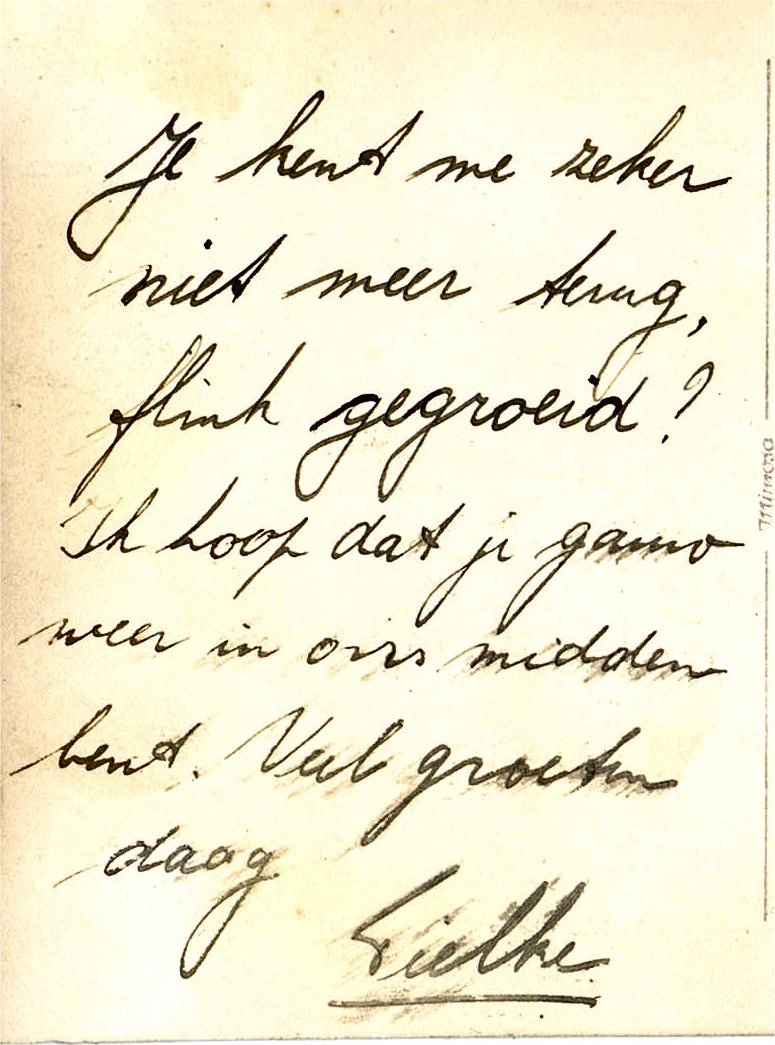 Je kent me zeker
niet meer terug,
flink gegroeid?
Ik hoop dat je gauw
weer in ons midden
bent. Veel groeten
daag
Mimosa